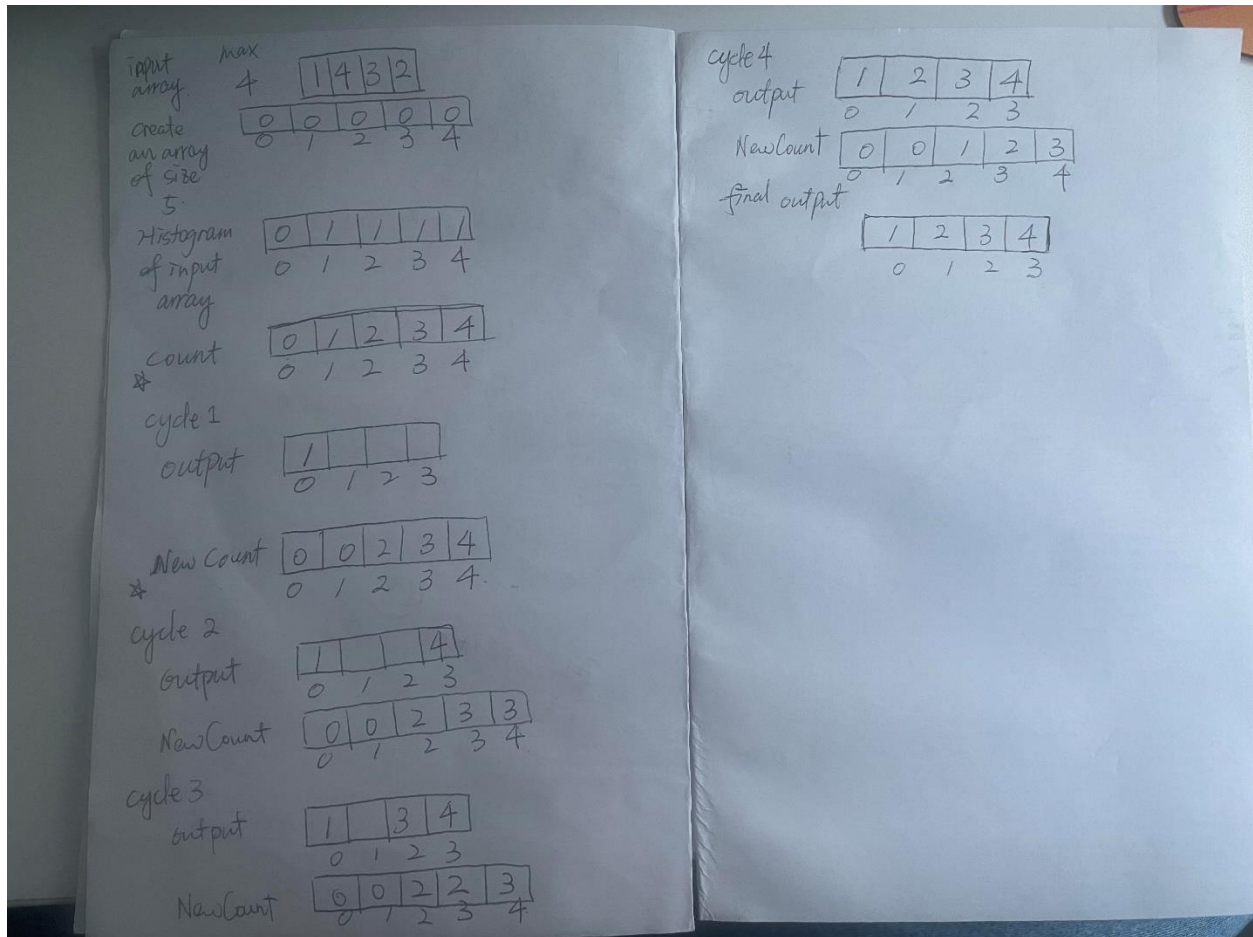 input max
array. 4 1 4 3 2
create 0 0 0 0 0
an array 0 1 2 3 4
of size
5.
Histogram 0 1 1 1 1
of input 0 1 2 3 4
array
count 0 1 2 3 4
0 1 2 3 4
cycle 1
output 1
0 1 2 3
New Count 0 0 2 3 4
0 1 2 3 4.
cycle 2
output 1 4
0 1 2 3
New Count 0 0 2 3 3
0 1 2 3 4
cycle 3
output 1 3 4
0 1 2 3
New Count 0 0 2 2 3
0 1 2 3 4
cycle 4
output 1 2 3 4
0 1 2 3
New Count 0 0 1 2 3
0 1 2 3 4
final output
1 2 3 4
0 1 2 3